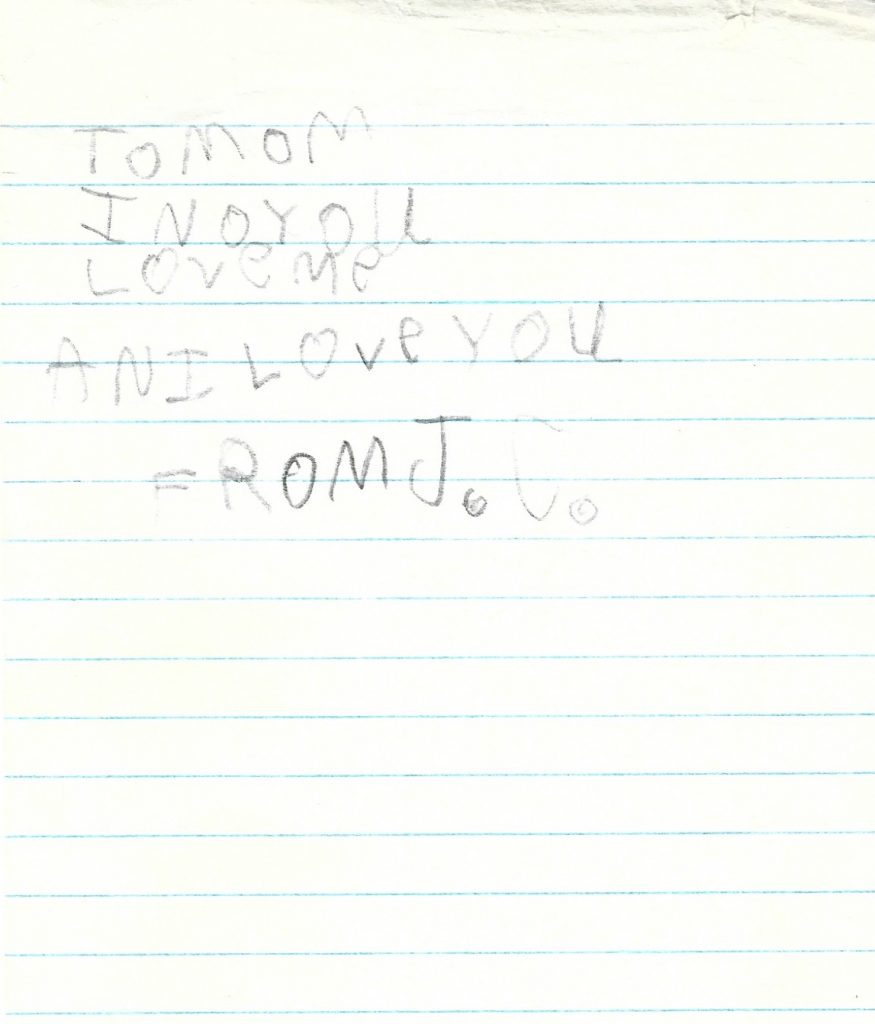 TO MOM
I NO YOU
LOVE ME
AN I LOVE YOU
FROM J.C.